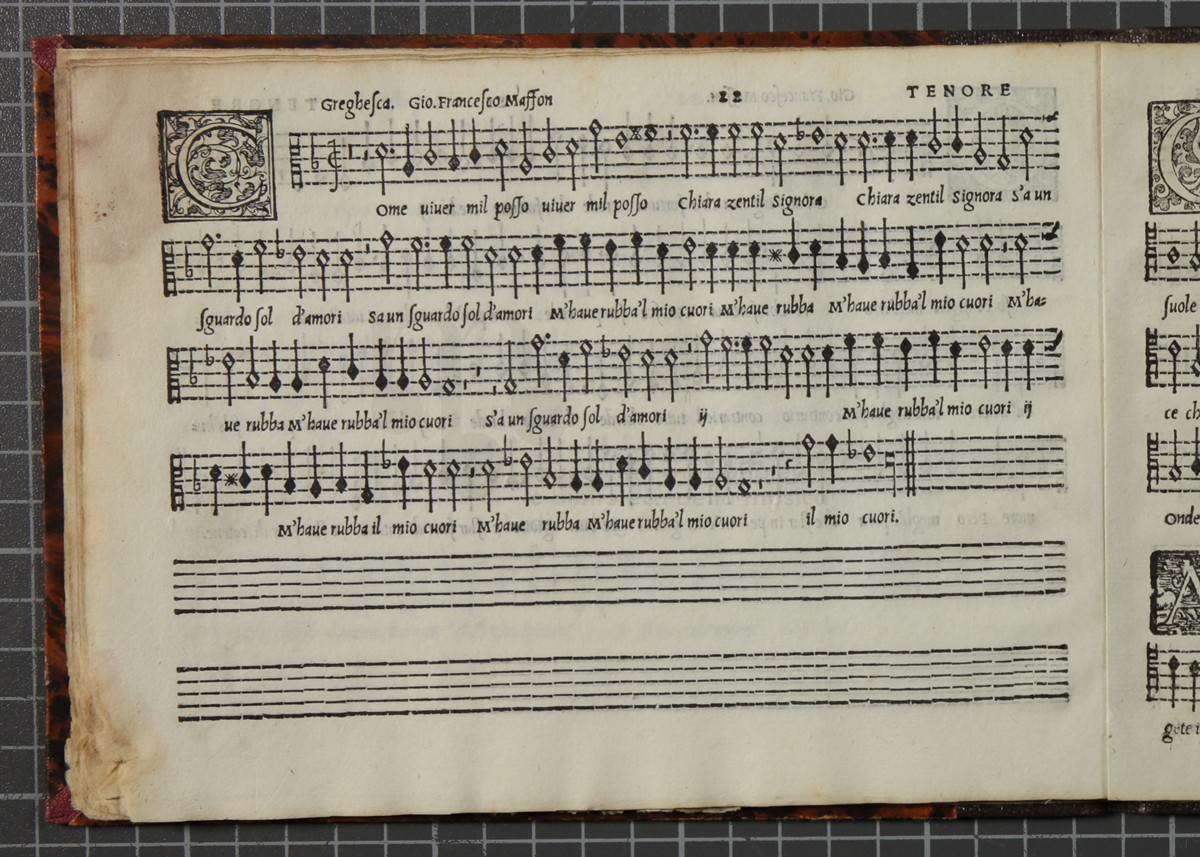 Greghesca. Gio. Francesco Masson 22 TENORE
COme uiuer mil posso uiuer mil posso Chiara zentil Signora Chiara zentil Signora S'a un
sguardo sol d'amori Sa un sguardo sol d'amori M'haue rubba'l mio cuori M'haue rubba M'haue rubba'l mio cuori M'ha=
ue rubba M'haue rubba'l mio cuori S'a un sguardo sol d'amori ij M'haue rubba'l mio cuori ij
M'haue rubba il mio cuori M'haue rubba M'haue rubba'l mio cuori il mio cuori.
suole
Onde
A